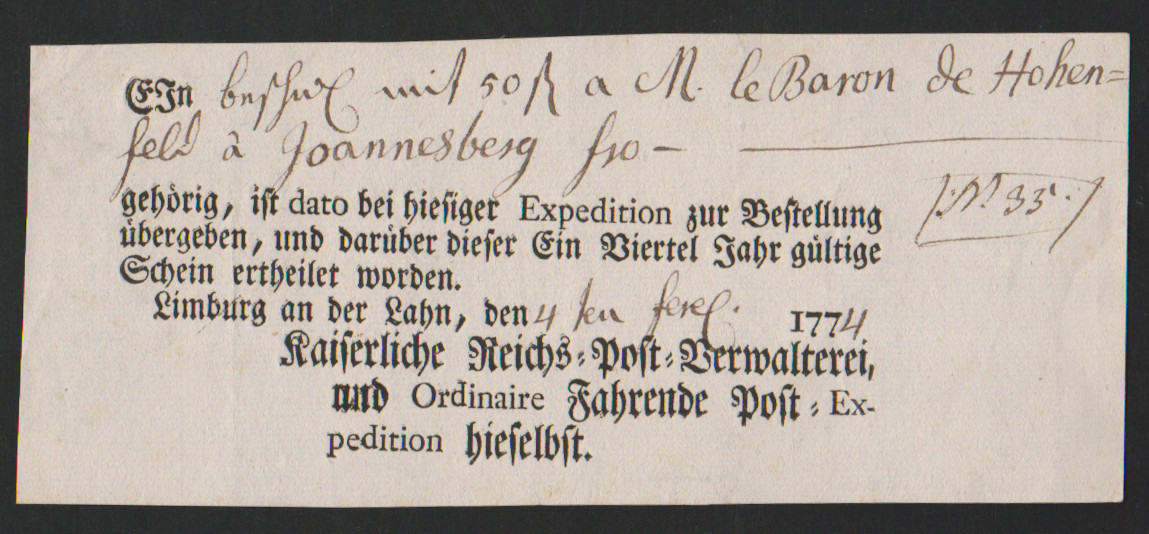 EIn beschwd mit 50 fl a M. le Baron de Hohen=
feld à Joannesberg fro —
gehörig, ist dato bei hiesiger Expedition zur Bestellung
/: N.º 35. :/
übergeben, und darüber dieser Ein Viertel Jahr gültige
Schein ertheilet worden.
Limburg an der Lahn, den 4 ten 1774
Kaiserliche Reichs=Post=Verwalterei,
und Ordinaire Fahrende Post=Ex-
pedition hieselbst.